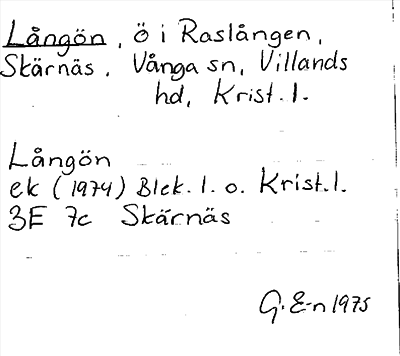 Långön, ö i Raslången,
Skärnäs. Vånga sn, Villands
hd, Krist. l.
Långön
ek (1974) Blek. l. o. Krist. l.
3E 7c Skärnäs
G. E-n 1975